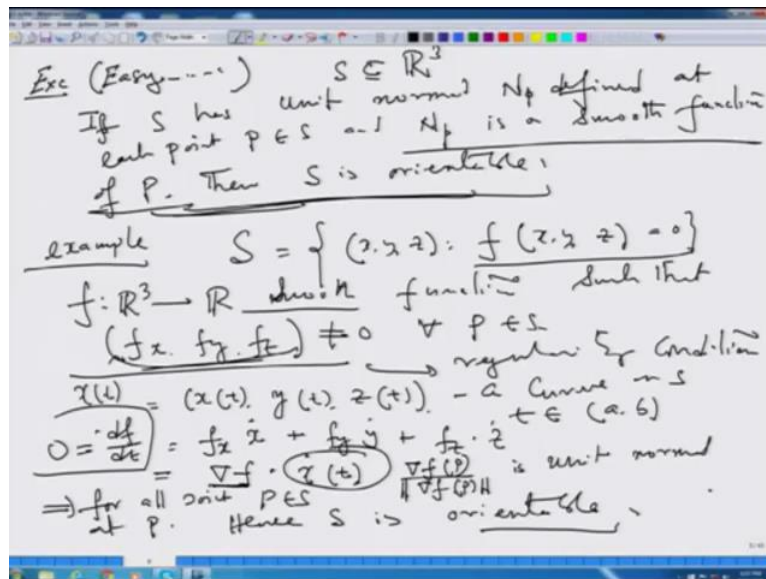 Exc (Easy......) S ⊆ ℝ³
If S has unit normal Np defined at
each point p ∈ S and Np is a smooth function
of P. Then S is orientable.
example S = { (x, y, z) : f (x, y, z) = 0 }
f: ℝ³ → ℝ smooth function such that
(fx, fy, fz) ≠ 0 ∀ p ∈ S
regularity condition
γ(t) = (x(t), y(t), z(t)) - a curve in S
t ∈ (a, b)
0 = df/dt = fx ẋ + fy ẏ + fz · ż
= ∇f · γ̇(t) ∇f(p)/‖∇f(p)‖ is unit normal
⇒ for all point P ∈ S
at P. Hence S is orientable.